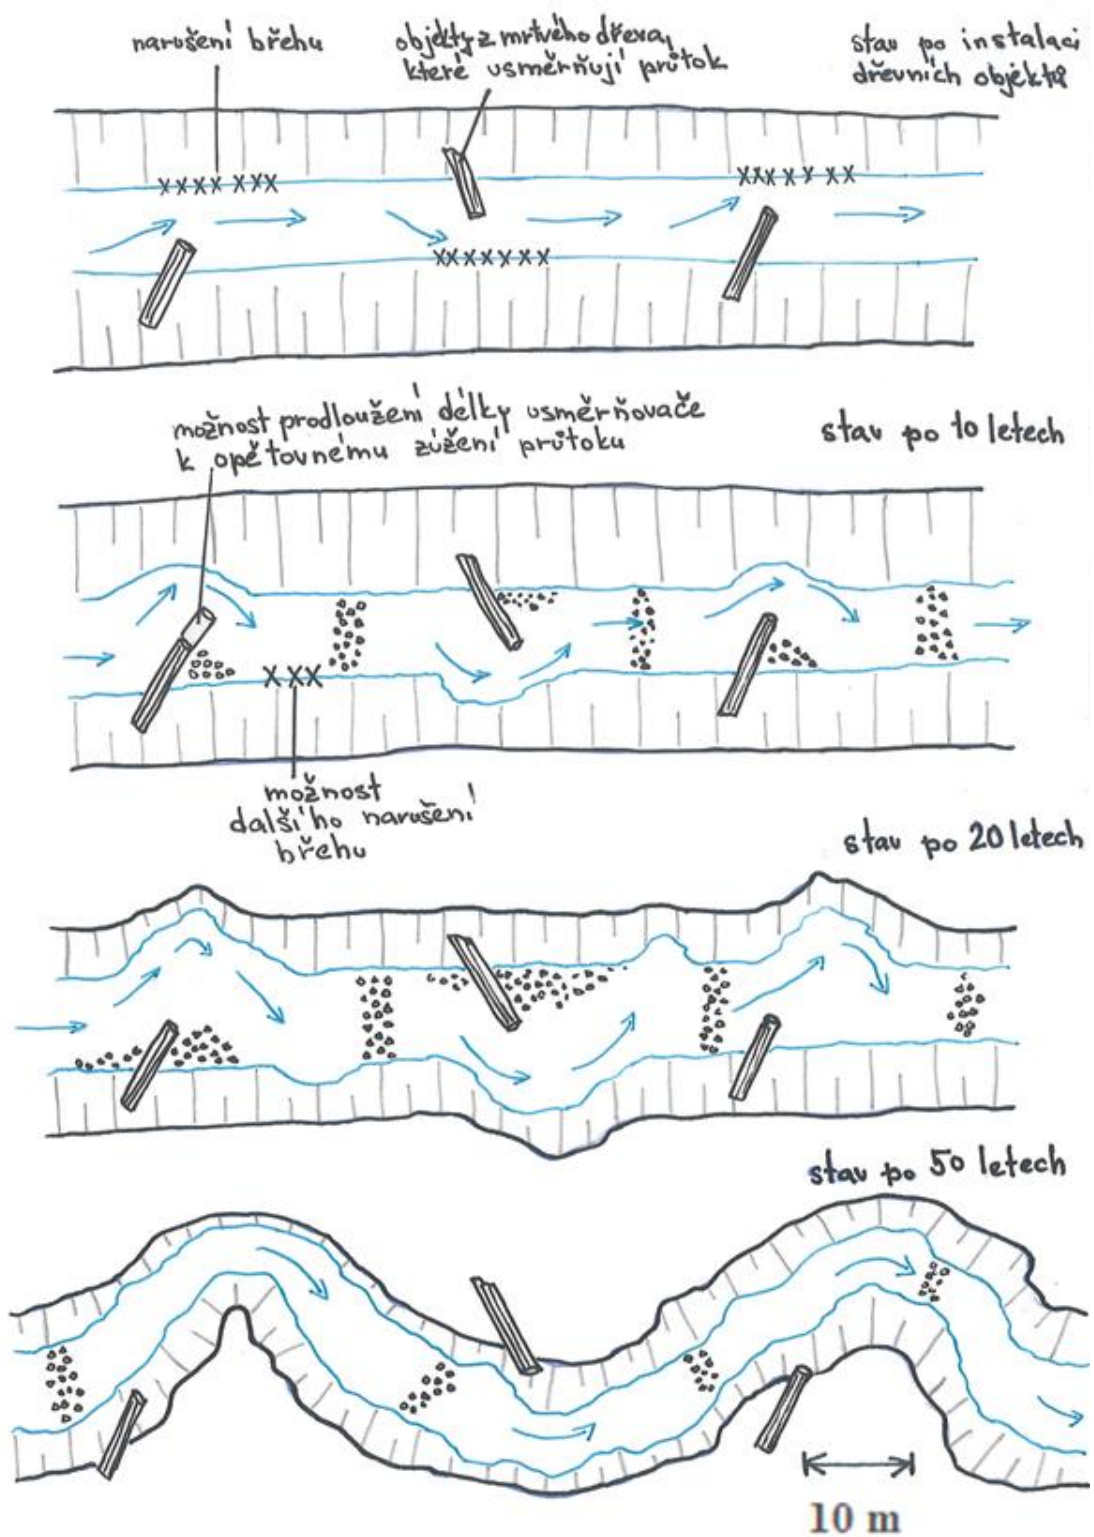 narušení břehu
objekty z mrtvého dřeva,
které usměrňují průtok
stav po instalaci
dřevních objektů
možnost prodloužení délky usměrňovače
k opětovnému zúžení průtoku
stav po 10 letech
možnost
dalšího narušení
břehu
stav po 20 letech
stav po 50 letech
10 m